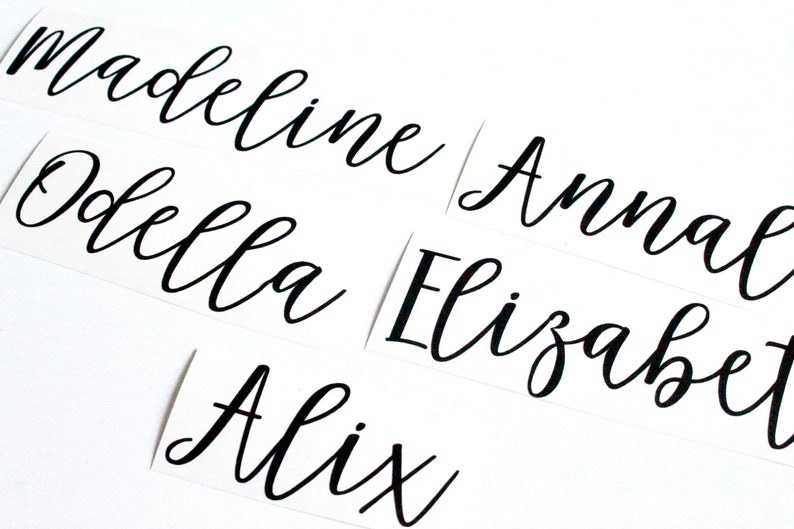 Madeline
Annal
Odella
Elizabet
Alix